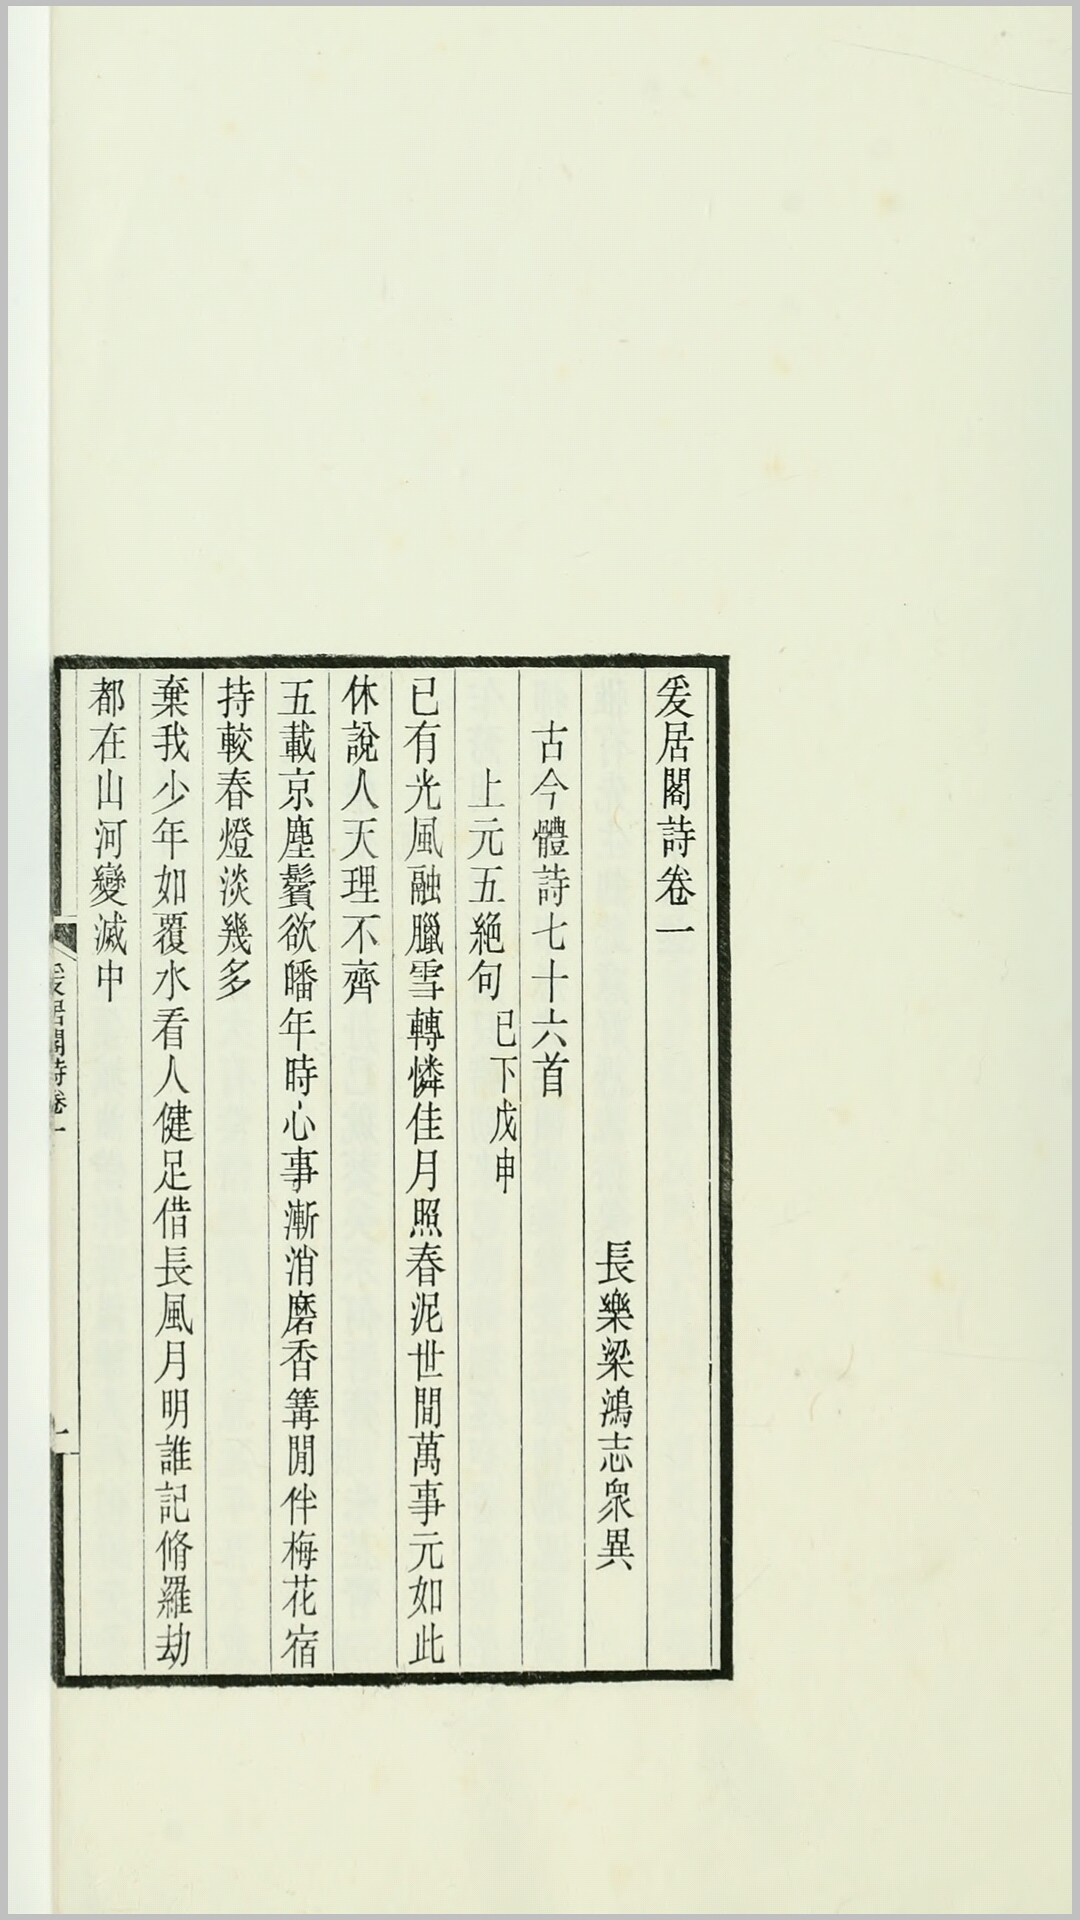 爰居閣詩卷一
長樂梁鴻志衆異
古今體詩七十六首
上元五絶句 已下戊申
已有光風融臘雪轉憐佳月照春泥世間萬事元如此
休說人天理不齊
五載京塵鬢欲皤年時心事漸消磨香篝閒伴梅花宿
持較春燈淡幾多
棄我少年如覆水看人健足借長風月明誰記脩羅劫
都在山河變滅中
爰居閣詩卷一
一